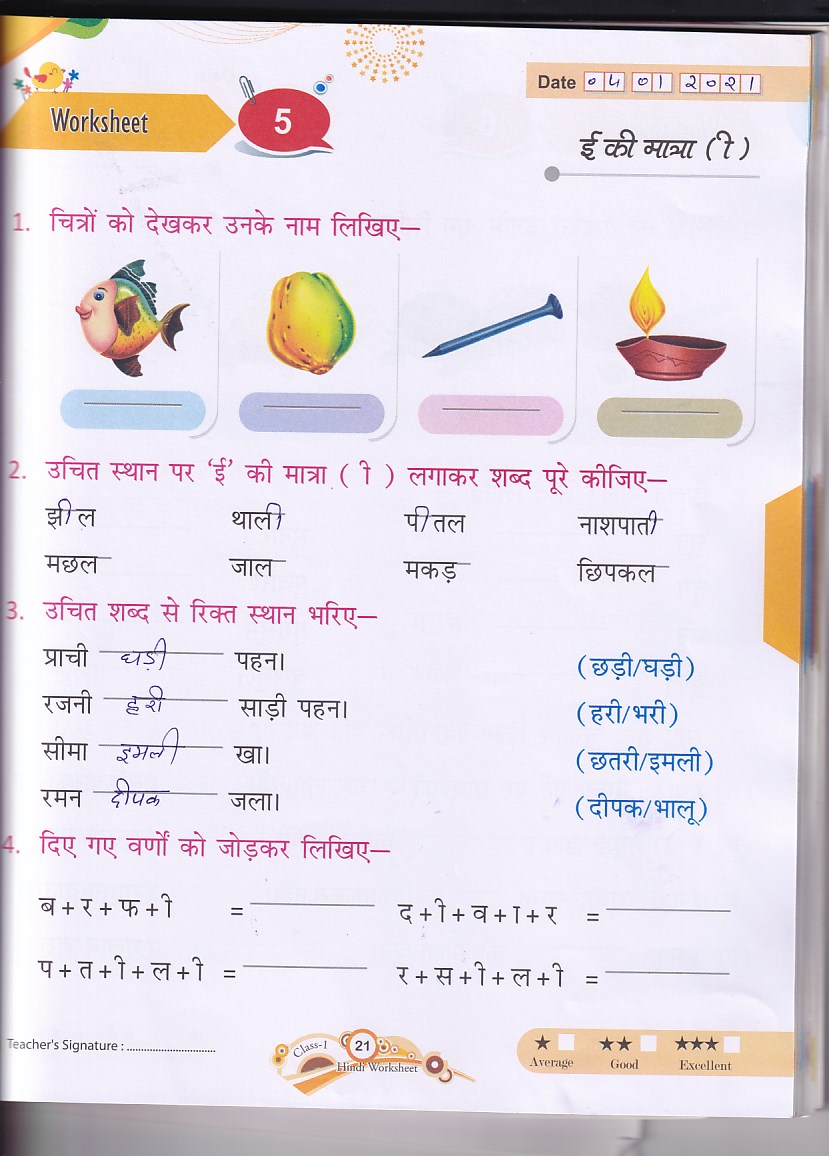 Date ०५ ०१ २०२१
Worksheet 5
ई की मात्रा ( ी )
1. चित्रों को देखकर उनके नाम लिखिए—
2. उचित स्थान पर ‘ई’ की मात्रा ( ी ) लगाकर शब्द पूरे कीजिए—
झील थाली पीतल नाशपाती
मछल जाल मकड़ छिपकल
3. उचित शब्द से रिक्त स्थान भरिए—
प्राची घड़ी पहन। (छड़ी/घड़ी)
रजनी हरी साड़ी पहन। (हरी/भरी)
सीमा इमली खा। (छतरी/इमली)
रमन दीपक जला। (दीपक/भालू)
4. दिए गए वर्णों को जोड़कर लिखिए—
ब + र + फ + ी = द + ी + व + ा + र =
प + त + ी + ल + ी = र + स + ी + ल + ी =
Teacher's Signature : ................................
Class-1 21 Hindi Worksheet
★ Average ★★ Good ★★★ Excellent